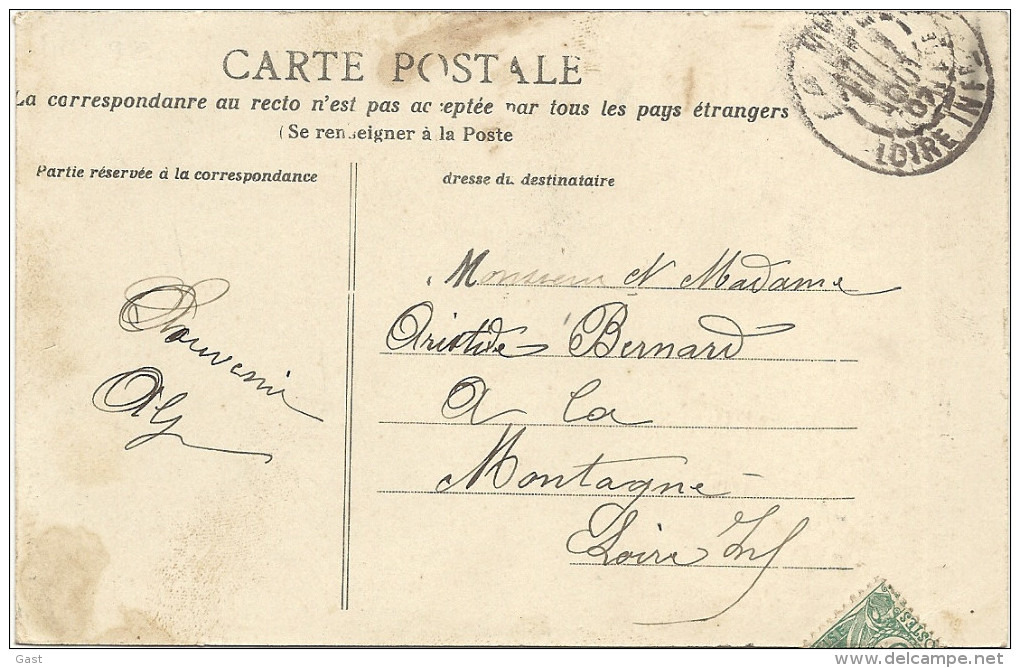 CARTE POSTALE
La correspondanre au recto n'est pas acceptée par tous les pays étrangers
(Se renseigner à la Poste
Partie réservée à la correspondance
dresse du destinataire
Monsieur et Madame
Aristide Bernard
A la
Montagne
Loire Inf
Souvenir
AG
LA
07
LOIRE INF
Gast
delcampe.net